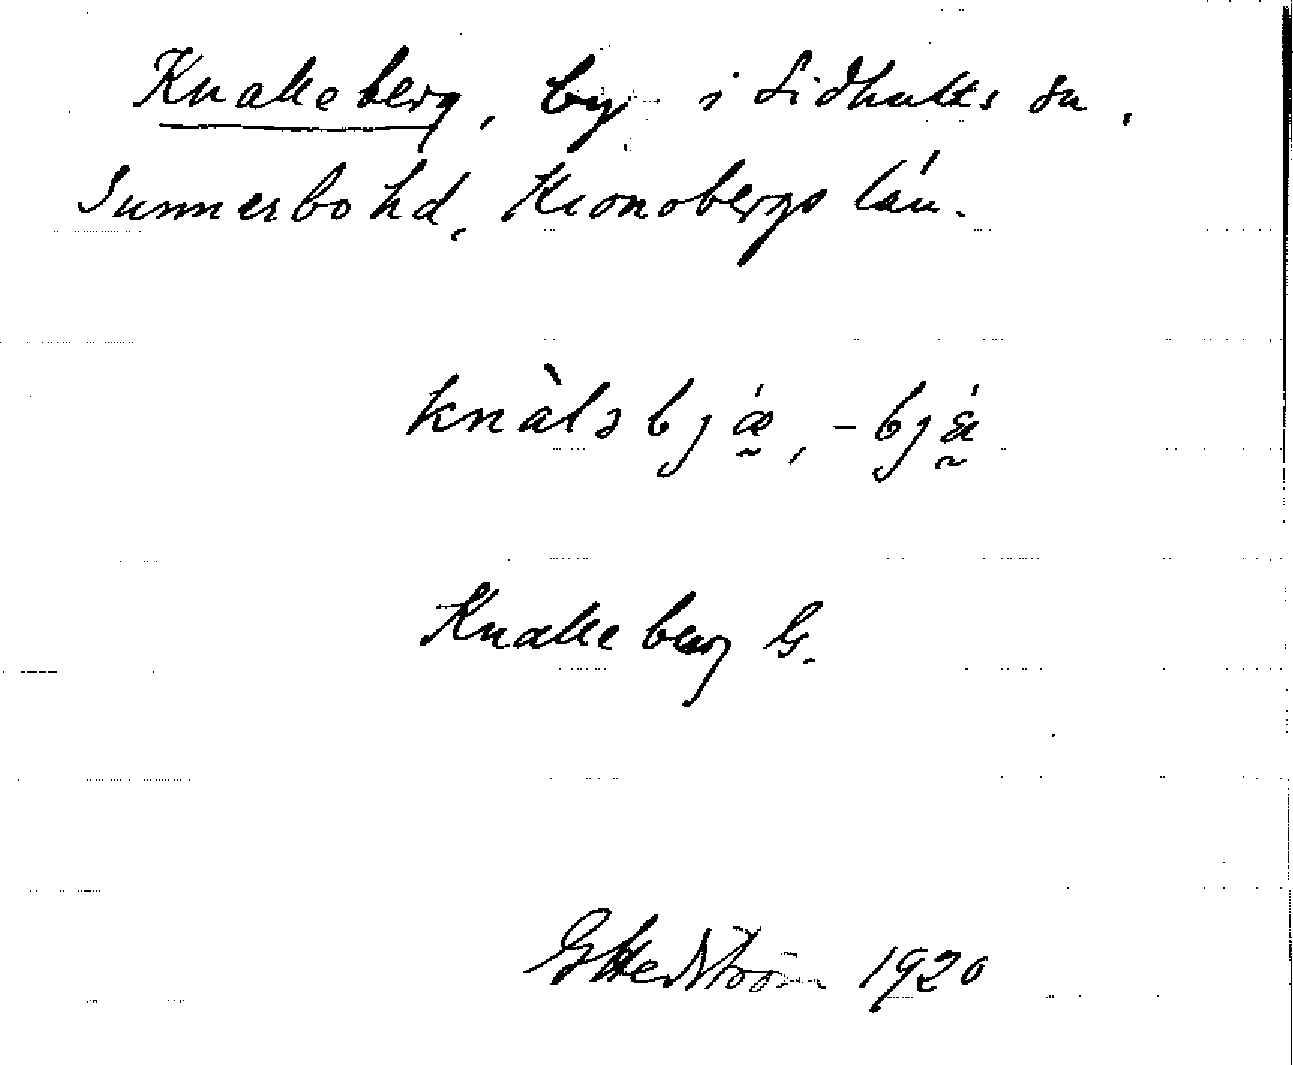 Knalleberg, by i Lidhults sn,
Sunnerbo hd, Kronobergs län.
knàləbjǽ̰, -bjä̰́
Knalleberg G.
GHedström 1920